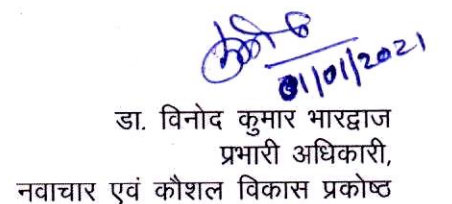 01/01/2021
डा. विनोद कुमार भारद्वाज
प्रभारी अधिकारी,
नवाचार एवं कौशल विकास प्रकोष्ठ